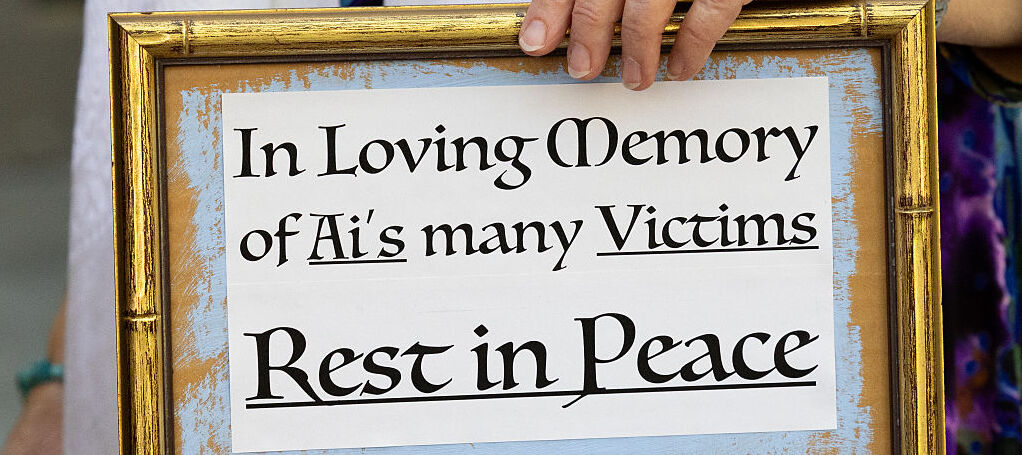 In Loving Memory
of Ai's many Victims
Rest in Peace